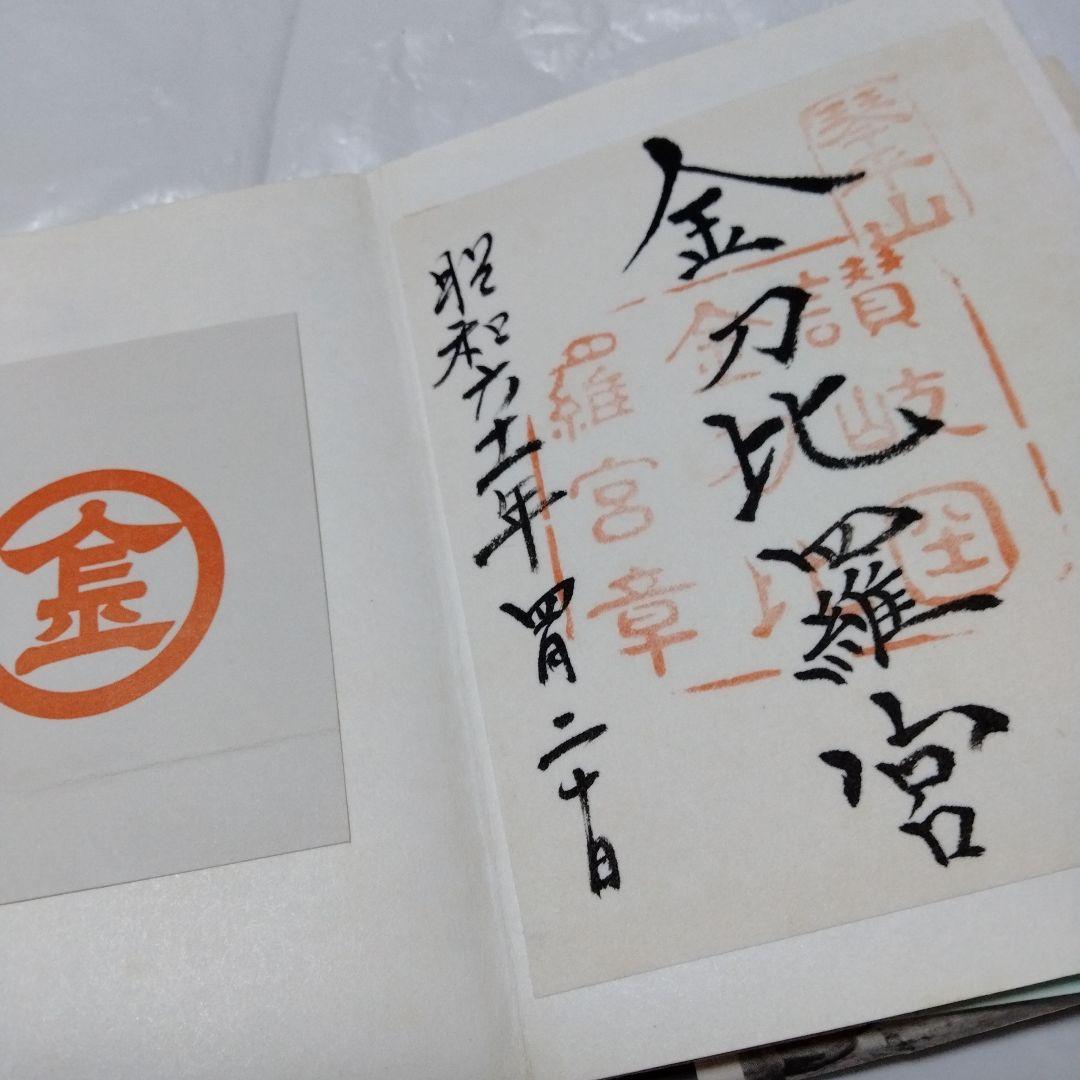 琴平山
讃岐国
金刀比
羅宮章
金刀比羅宮
昭和六十一年四月二十日
金